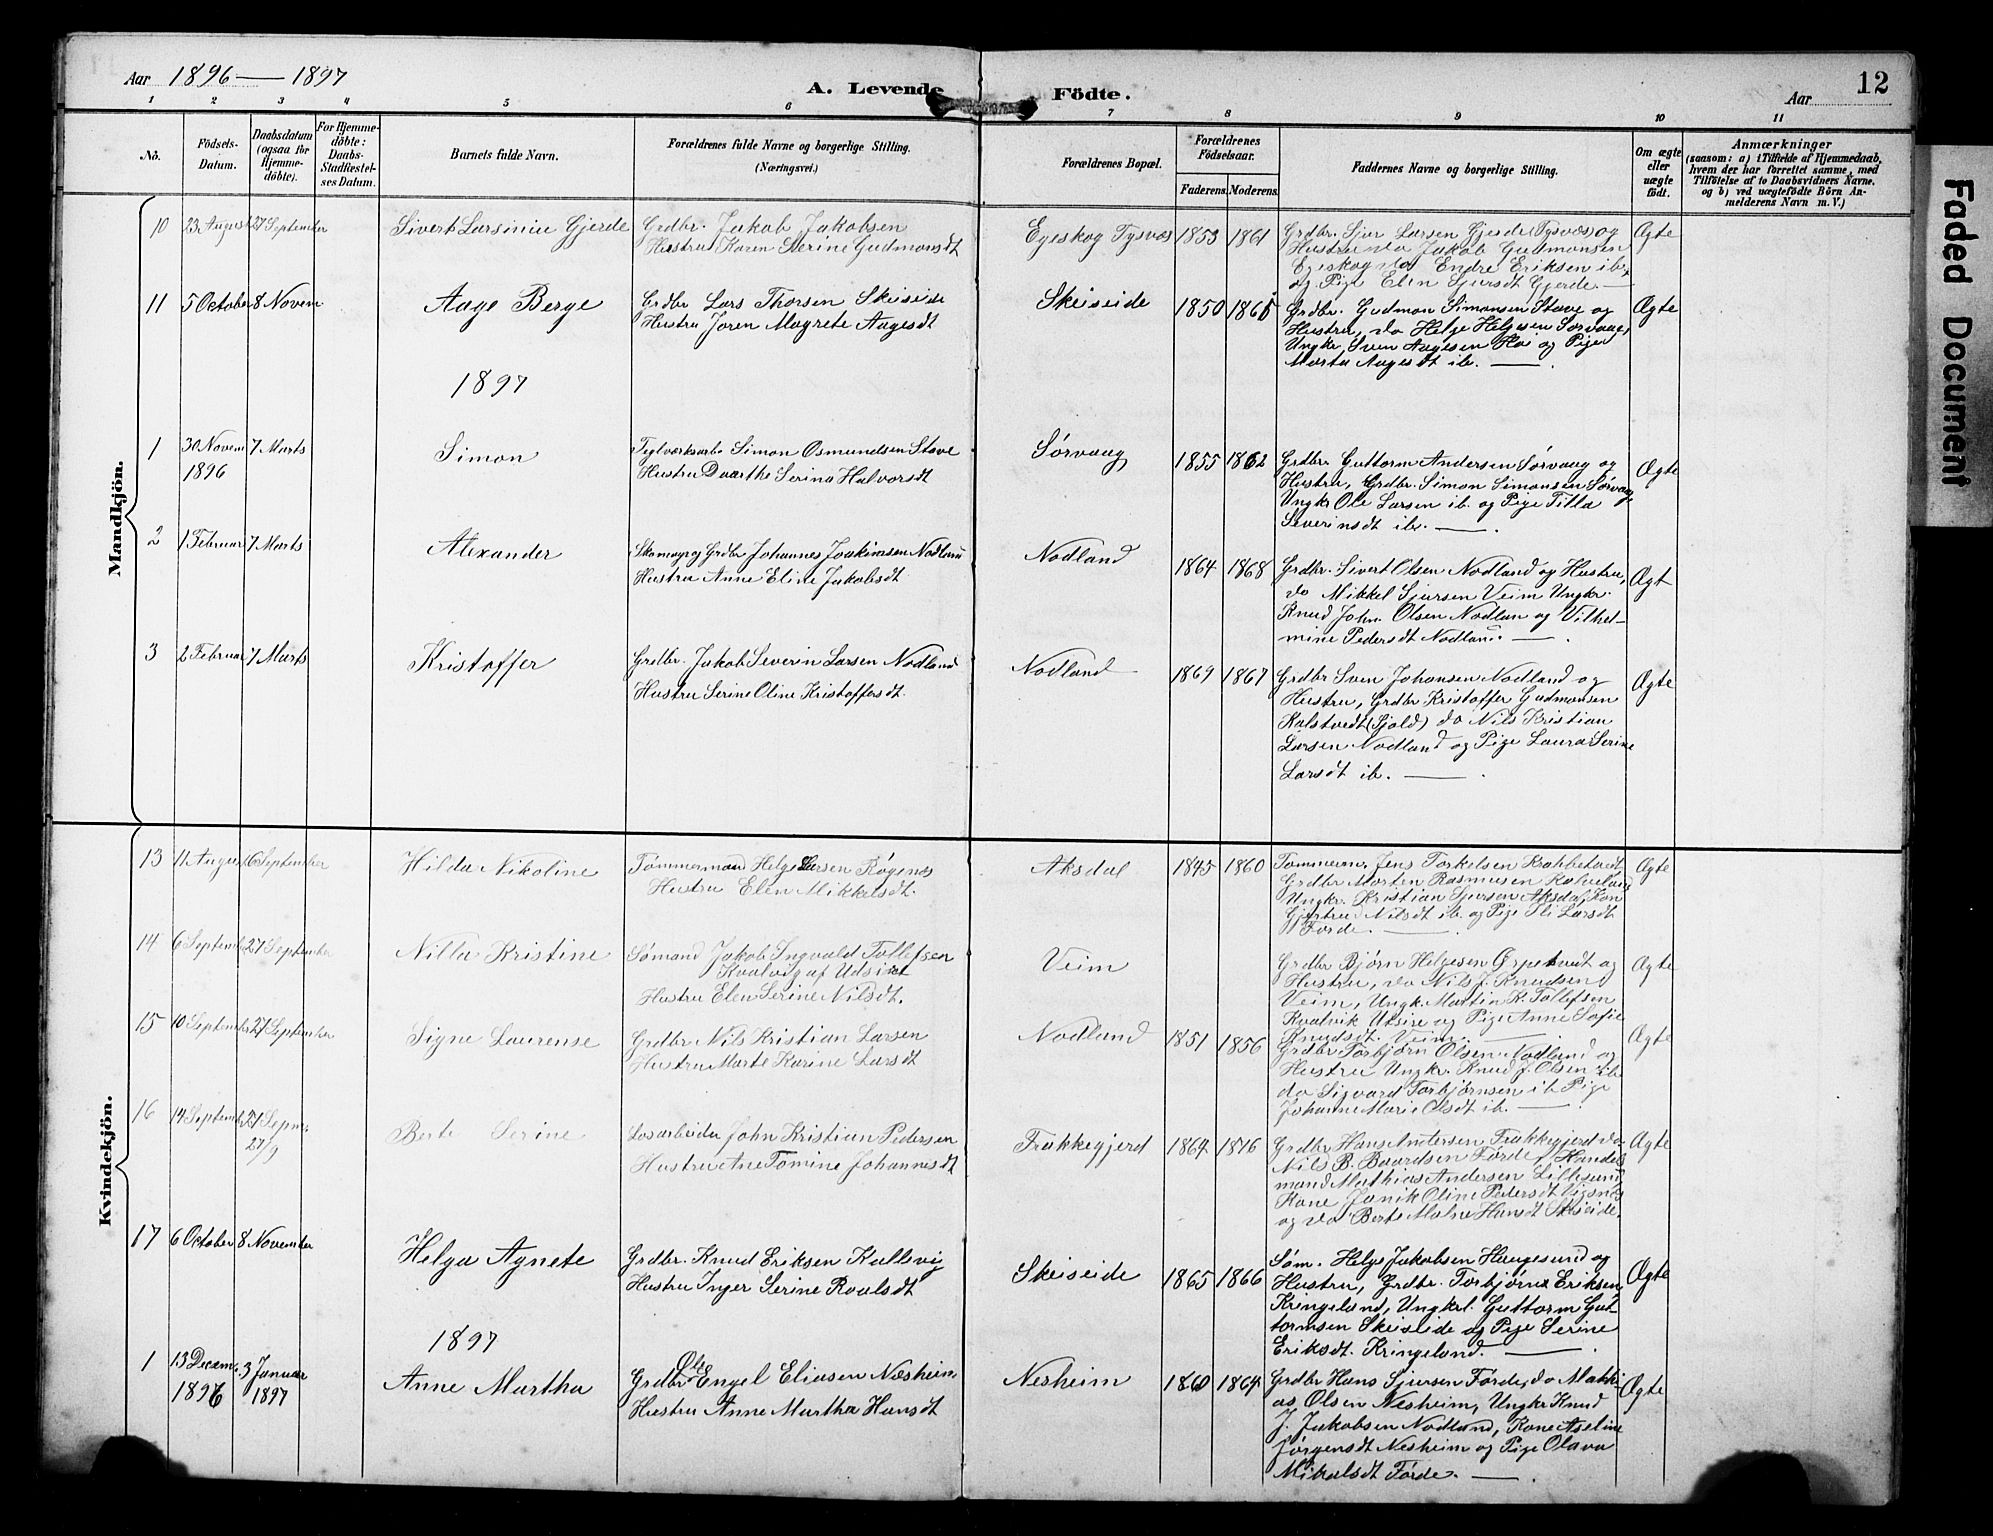 Aar 1896 — 1897
A. Levende Fødte.
Aar
12
1 2 3 4 5 6 7 8 9 10 11
No.
Fødsels-Datum.
Daabsdatum (ogsaa for Hjemme-døbte).
For Hjemme-døbte: Daabs-Stadfæstel-ses Datum.
Barnets fulde Navn.
Forældrenes fulde Navne og borgerlige Stilling.
(Næringsvei.)
Forældrenes Bopæl.
Forældrenes Fødselsaar.
Faderens. Moderens.
Faddernes Navne og borgerlige Stilling.
Om ægte eller uægte født.
Anmærkninger
(saasom: a) i Tilfælde af Hjemmedaab, hvem der har forrettet samme, med Tilføielse af to Daabsvidners Navne, og b) ved uægtefødte Børn An-melderens Navn m. V.)
Mandkjøn.
10 23 August 27 September Sivert Larsinius Gjerde
Grdbr. Jakob Jakobsen
Hustru Karen Serine Gudmonsdt
Egeskog Tysvær 1853 1861
Grdbr. Sjur Larsen Gjerde (Tysvær) og
Hustru do Jakob Gudmonsen
Egeskog do Endre Eriksen ib.
og Pige Elen Sjursdt Gjerde. —
Ægte
11 5 October 8 Novem Aage Berge
Grdbr Lars Thorsen Skeiseide
Hustru Joren Magrete Aagesdt
Skeiseide 1850 1865
Grdbr. Gudmon Simonsen Stave og
Hustru, do Helge Helgesen Sørvaag,
Ungkr Sven Aagesen Høi og Pige
Marta Aagesdt ib. —.
Ægte
1897
1 30 Novem 1896 7 Marts Simon
Teglverksarb. Simon Osmundsen Stave
Hustru Daarthe Serina Halvorsdt
Sørvaag 1855 1862
Grdbr. Guttorm Andersen Sørvaag og
Hustru, Grdbr. Simon Simonsen Sørvaag
Ungkr Ole Larsen ib. og Pige Tilla
Severinsdt ib. —.
Ægte
2 1 Februar 7 Marts Alexander
Skomager og Grdbr Johannes Joakimsen Nodland
Hustru Anne Eline Jakobsdt
Nodland 1864 1868
Grdbr. Sivert Olsen Nodland og Hustru,
do Mikkel Sjursen Veim Ungkr.
Knud John. Olsen Nodlan og Vilhel-
mine Pedersdt Nodland. —.
Ægt
3 2 Februar 7 Marts Kristoffer
Grdbr. Jakob Severin Larsen Nodland
Hustru Serine Oline Kristoffersdt.
Nodland 1869 1867
Grdbr Sven Johansen Nodland og
Hustru, Grdbr Kristoffer Gudmonsen
Kalstvedt (Sjold) do Nils Kristian
Larsen Nodland og Pige Laura Serine
Larsdt ib. —.
Ægte
Kvindekjøn.
13 11 August 6 September Hilda Nikoline
Tømmermand Helge Larsen Røgenes
Hustru Elen Mikkelsdt.
Aksdal 1845 1860
Tømmerm. Jens Torkelsen Krabbetvedt
Grdbr Morten Rasmusen Kalveland
Ungkr. Kristian Sjursen Aksdal, Kon
Gjertrud Nilsdt ib. og Pige Eli Larsdt
Førde. —.
Ægte
14 6 September 27 September Nilla Kristine
Sømand Jakob Ingvald Tollefsen
Kvalvig af Udsiret
Hustru Elen Serine Nilsdt.
Veim
Grdbr Bjørn Helgesen Ørpetvedt og
Hustru, do Nils J. Knudsen
Veim, Ungk. Martin K. Tollefsen
Kvalvik Utsire og Pige Anne Sofie
Knudsdt. Veim. —
Ægte
15 10 September 27 September Signe Laurense
Grdbr Nils Kristian Larsen
Hustru Marte Karine Larsdt
Nodland 1851 1856
Grdbr Torbjørn Olsen Nodland og
Hustru Ungkr. Knud J. Olsen ib.
do Sigvard Torbjørnsen ib Pige
Johanne Marie Olsdt ib. —.
Ægte
16 14 September 27 Sepm. 27/9 Berte Serine
Løsarbeider John Kristian Pedersen
Hustru Ane Tomine Johannesdt
Frakkegjerd 1864 1876
Grdbr Hans Andersen Frakkegjerd do
Nils B. Baardsen Førde, Handels
mand Mathias Andersen Lillesund
Kone Janik Oline Pedersdt Vigsnes
og do Berte Malne Hansdt Skeiseide.
Ægte
17 6 October 8 November Helga Agnete
Grdbr. Knud Eriksen Kallevig
Hustru Inger Serine Roalsdt
Skeiseide 1865 1866
Søm. Helge Jakobsen Haugesund og
Hustru, Grdbr. Torbjørn Eriksen
Kringeland, Ungkrl. Guttorm Gut-
tormsen Skeiseide og Pige Serine
Eriksdt. Kringeland. —.
Ægte
1897
1 13 Decem. 1896 3 Januar 1897 Anne Martha
Grdbr Ole Engel Eliasen Næsheim
Hustru Anne Martha Hansdt
Nesheim 1860 1864
Grdbr Hans Sjursen Førde, do Mathi-
as Olsen Nesheim, Ungkr Knud
J. Jakobsen Nodland, Kone Aseline
Jørgensdt Nesheim og Pige Olava
Mikalsdt Førde. —.
Ægte
Faded Document